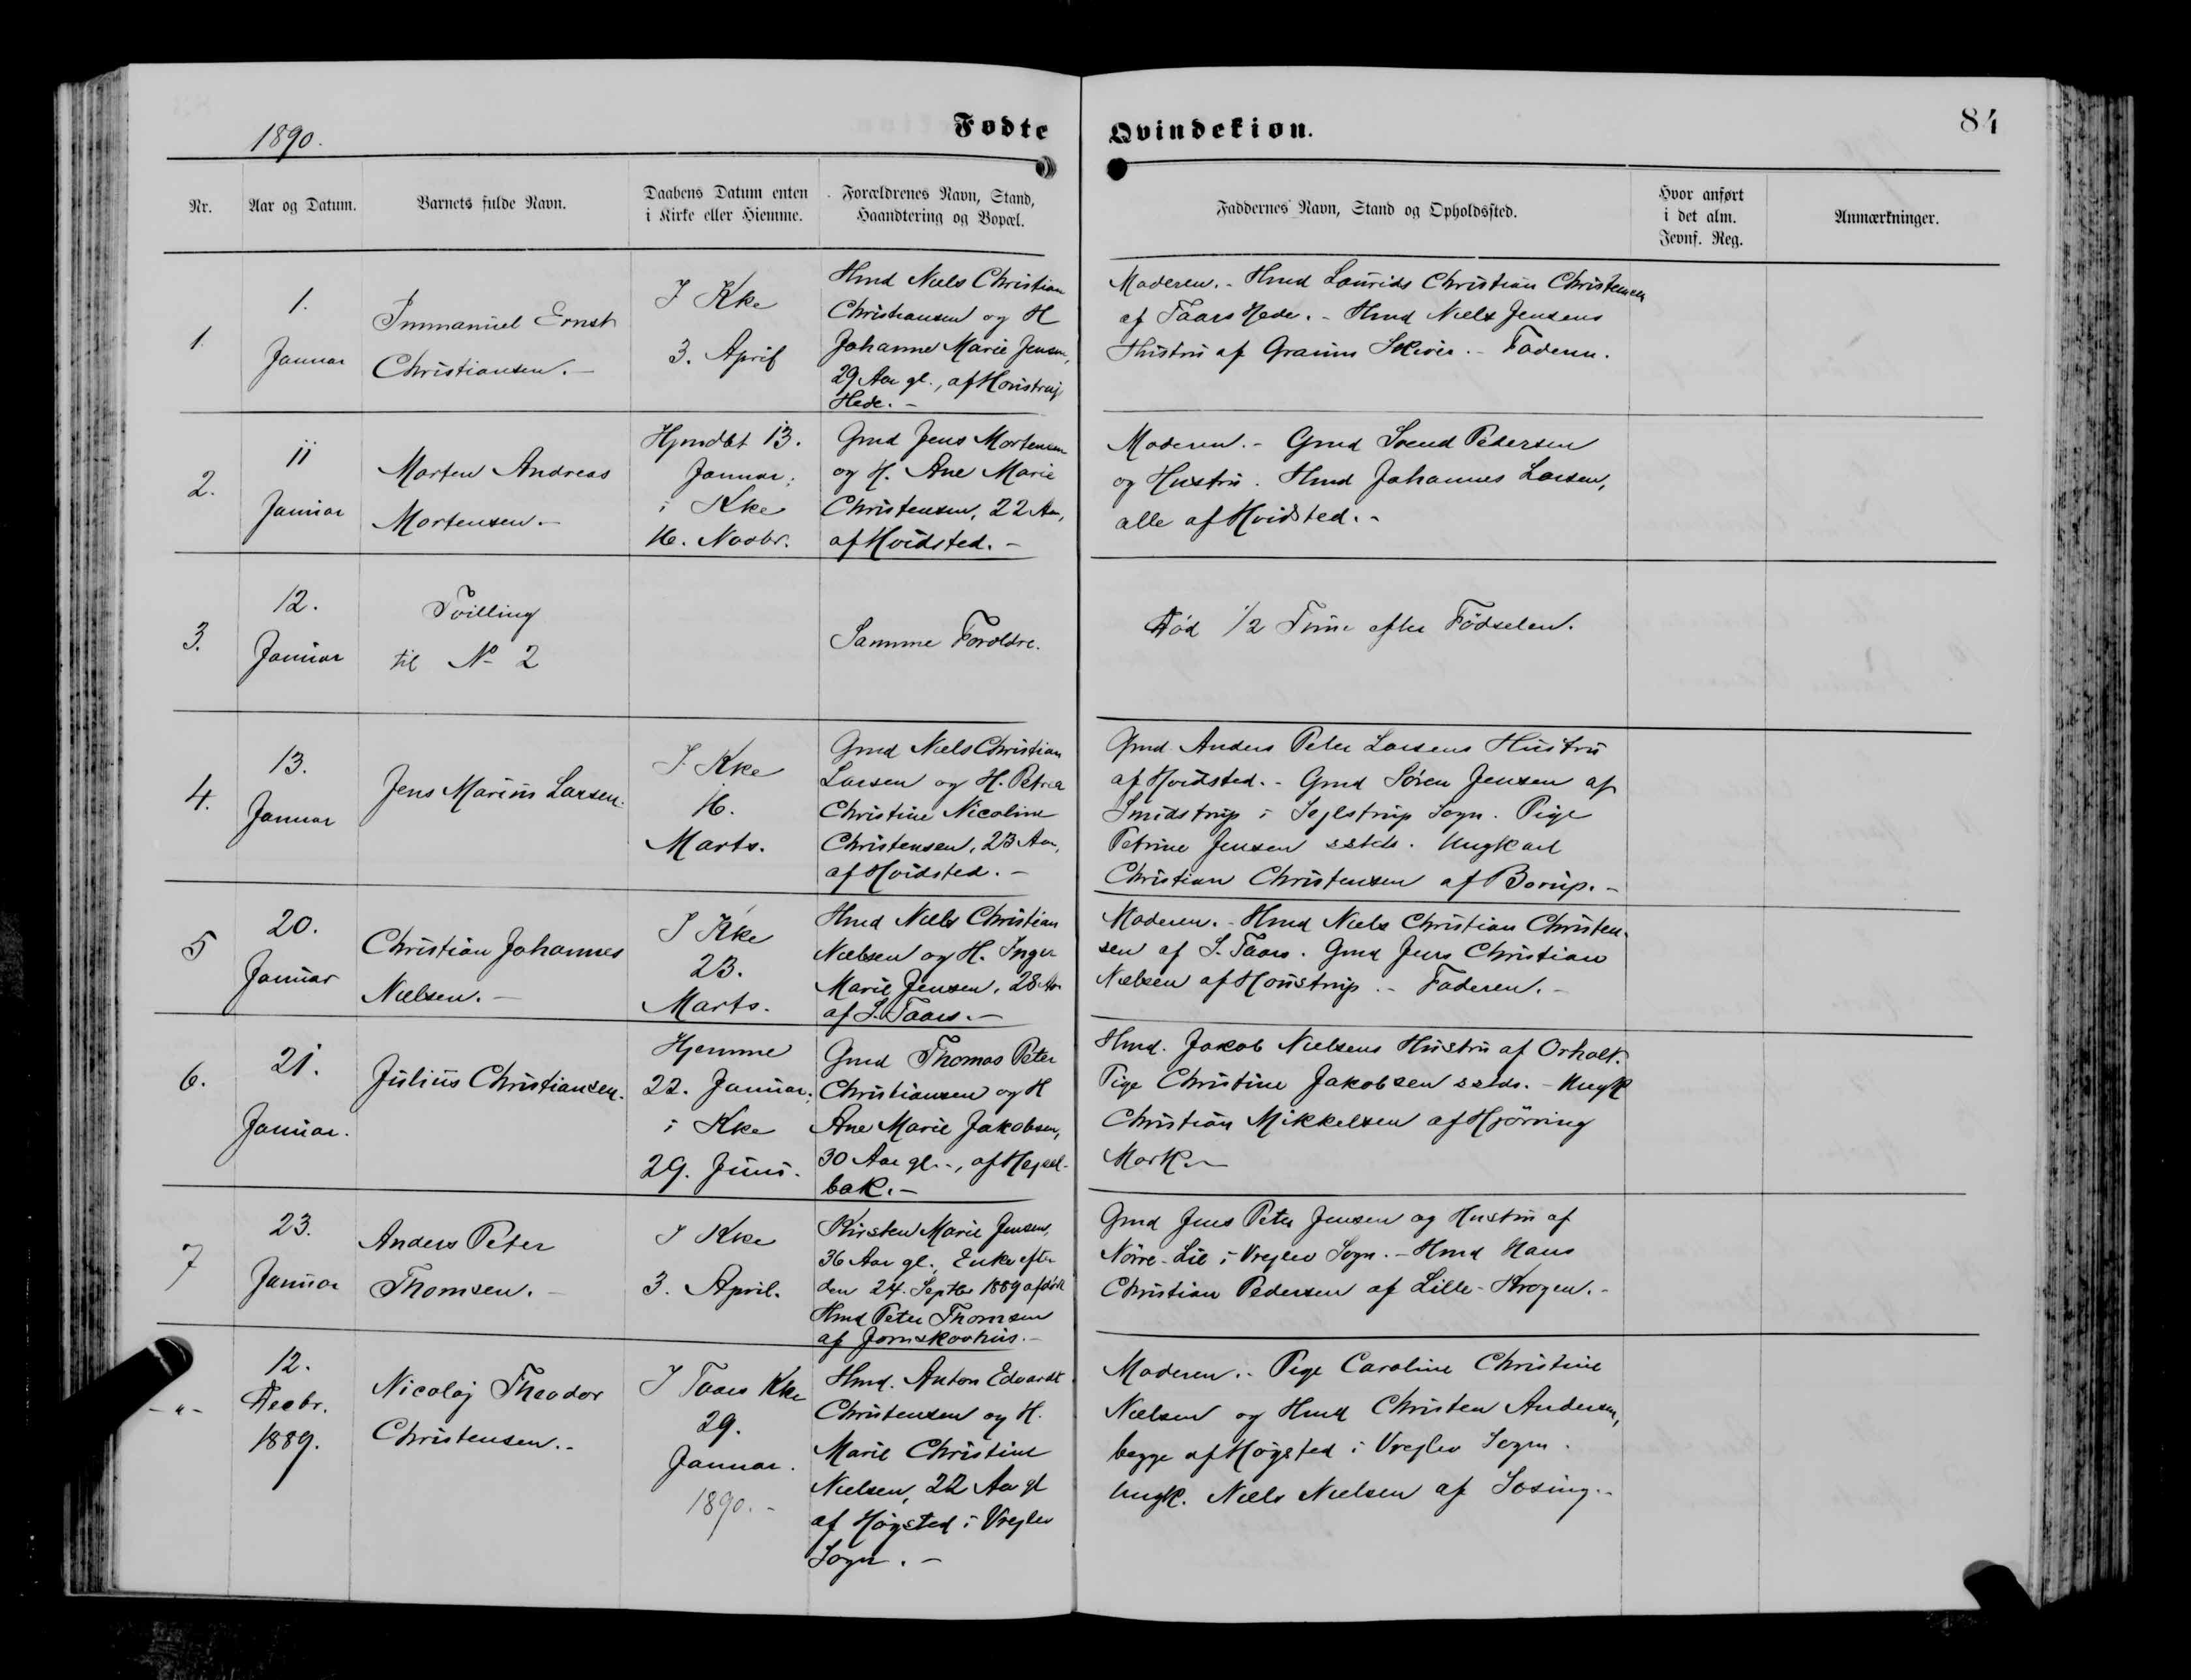 1890.
Fødte
Qvindekiøn.
84
Nr.
Aar og Datum.
Barnets fulde Navn.
Daabens Datum enten
i Kirke eller Hiemme.
Forældrenes Navn, Stand,
Haandtering og Bopæl.
Faddernes Navn, Stand og Opholdssted.
Hvor anført
i det alm.
Jevnf. Reg.
Anmærkninger.
1.
1.
Januar
Immanuel Ernst
Christiansen.-
I Kke
3. April
Hmd Niels Christian
Christiansen og H
Johanne Marie Jensen,
29 Aar gl., af Houstrup
Hede.-
Moderen.- Hmd Laurids Christian Christensen
af Taars Hede.- Hmd Niels Jensens
Hustru af Graum Skiver.- Faderen.
2.
11
Januar
Morten Andreas
Mortensen.-
Hjmdbt 13.
Januar;
i Kke
16. Novbr.
Gmd Jens Mortensen
og H. Ane Marie
Christensen, 22 Aar,
af Hvidsted.-
Moderen.- Gmd Svend Pedersen
og Hustru. Hmd Johannes Larsen,
alle af Hvidsted.-
3.
12.
Januar
Tvilling
til No 2
Samme Forældre.
Død 1/2 Time efter Fødselen.
4.
13.
Januar
Jens Marius Larsen.
I Kke
16.
Marts.
Gmd Niels Christian
Larsen og H. Petrea
Christine Nicoline
Christensen, 23 Aar,
af Hvidsted.-
Gmd Anders Peter Larsens Hustru
af Hvidsted.- Gmd Søren Jensen af
Smidstrup i Sejlstrup Sogn. Pige
Petrine Jensen sstds. Ungkarl
Christian Christensen af Borup.-
5
20.
Januar
Christian Johannes
Nielsen.-
I Kke
23.
Marts.
Hmd Niels Christian
Nielsen og H. Inger
Marie Jensen, 28 Aar
af S. Taars.-
Moderen.- Hmd Niels Christian Christen-
sen af S. Taars. Gmd Jens Christian
Nielsen af Houstrup.- Faderen.-
6.
21.
Januar.
Julius Christiansen.
Hjemme
22. Januar;
i Kke
29. Juni.
Gmd Thomas Peter
Christiansen og H
Ane Marie Jakobsen,
30 Aar gl.,
bak.-
Hmd. Jakob Nielsens Hustru af Orholt.
Pige Christine Jakobsen sstds.- Ungk
Christian Mikkelsen af Hjørring
Mark.-
7
23.
Januar
Anders Peter
Thomsen.-
I Kke
3. April.
Kirsten Marie Jensen,
36 Aar gl., Enke efter
den 24. Septbr 1889 afdøde
Hmd Peter Thomsen
af Jornskovhus.-
Gmd Jens Peter Jensen og Hustru af
Nørre-Lie i Vrejlev Sogn.- Hmd Hans
Christian Pedersen af Lille-Krogen.-
-"-
12.
Decbr.
1889.
Nicolaj Theodor
Christensen.-
I Taars Kke
29.
Januar.
1890.-
Hmd. Anton Edvardt
Christensen og H.
Marie Christine
Nielsen, 22 Aar gl
af Høgsted i Vrejlev
Sogn.-
Moderen.- Pige Caroline Christine
Nielsen og Hmd Christen Andersen,
begge af Høgsted i Vrejlev Sogn.
Ungk. Niels Nielsen af Sosing.-